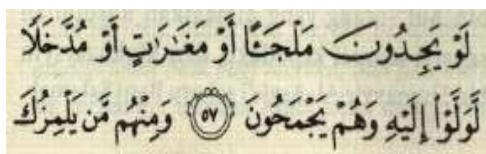 لَوْ يَجِدُونَ مَلْجَـًٔا أَوْ مَغَـٰرَٰتٍ أَوْ مُدَّخَلًا
لَّوَلَّوْا۟ إِلَيْهِ وَهُمْ يَجْمَحُونَ ۝٥٧ وَمِنْهُم مَّن يَلْمِزُكَ